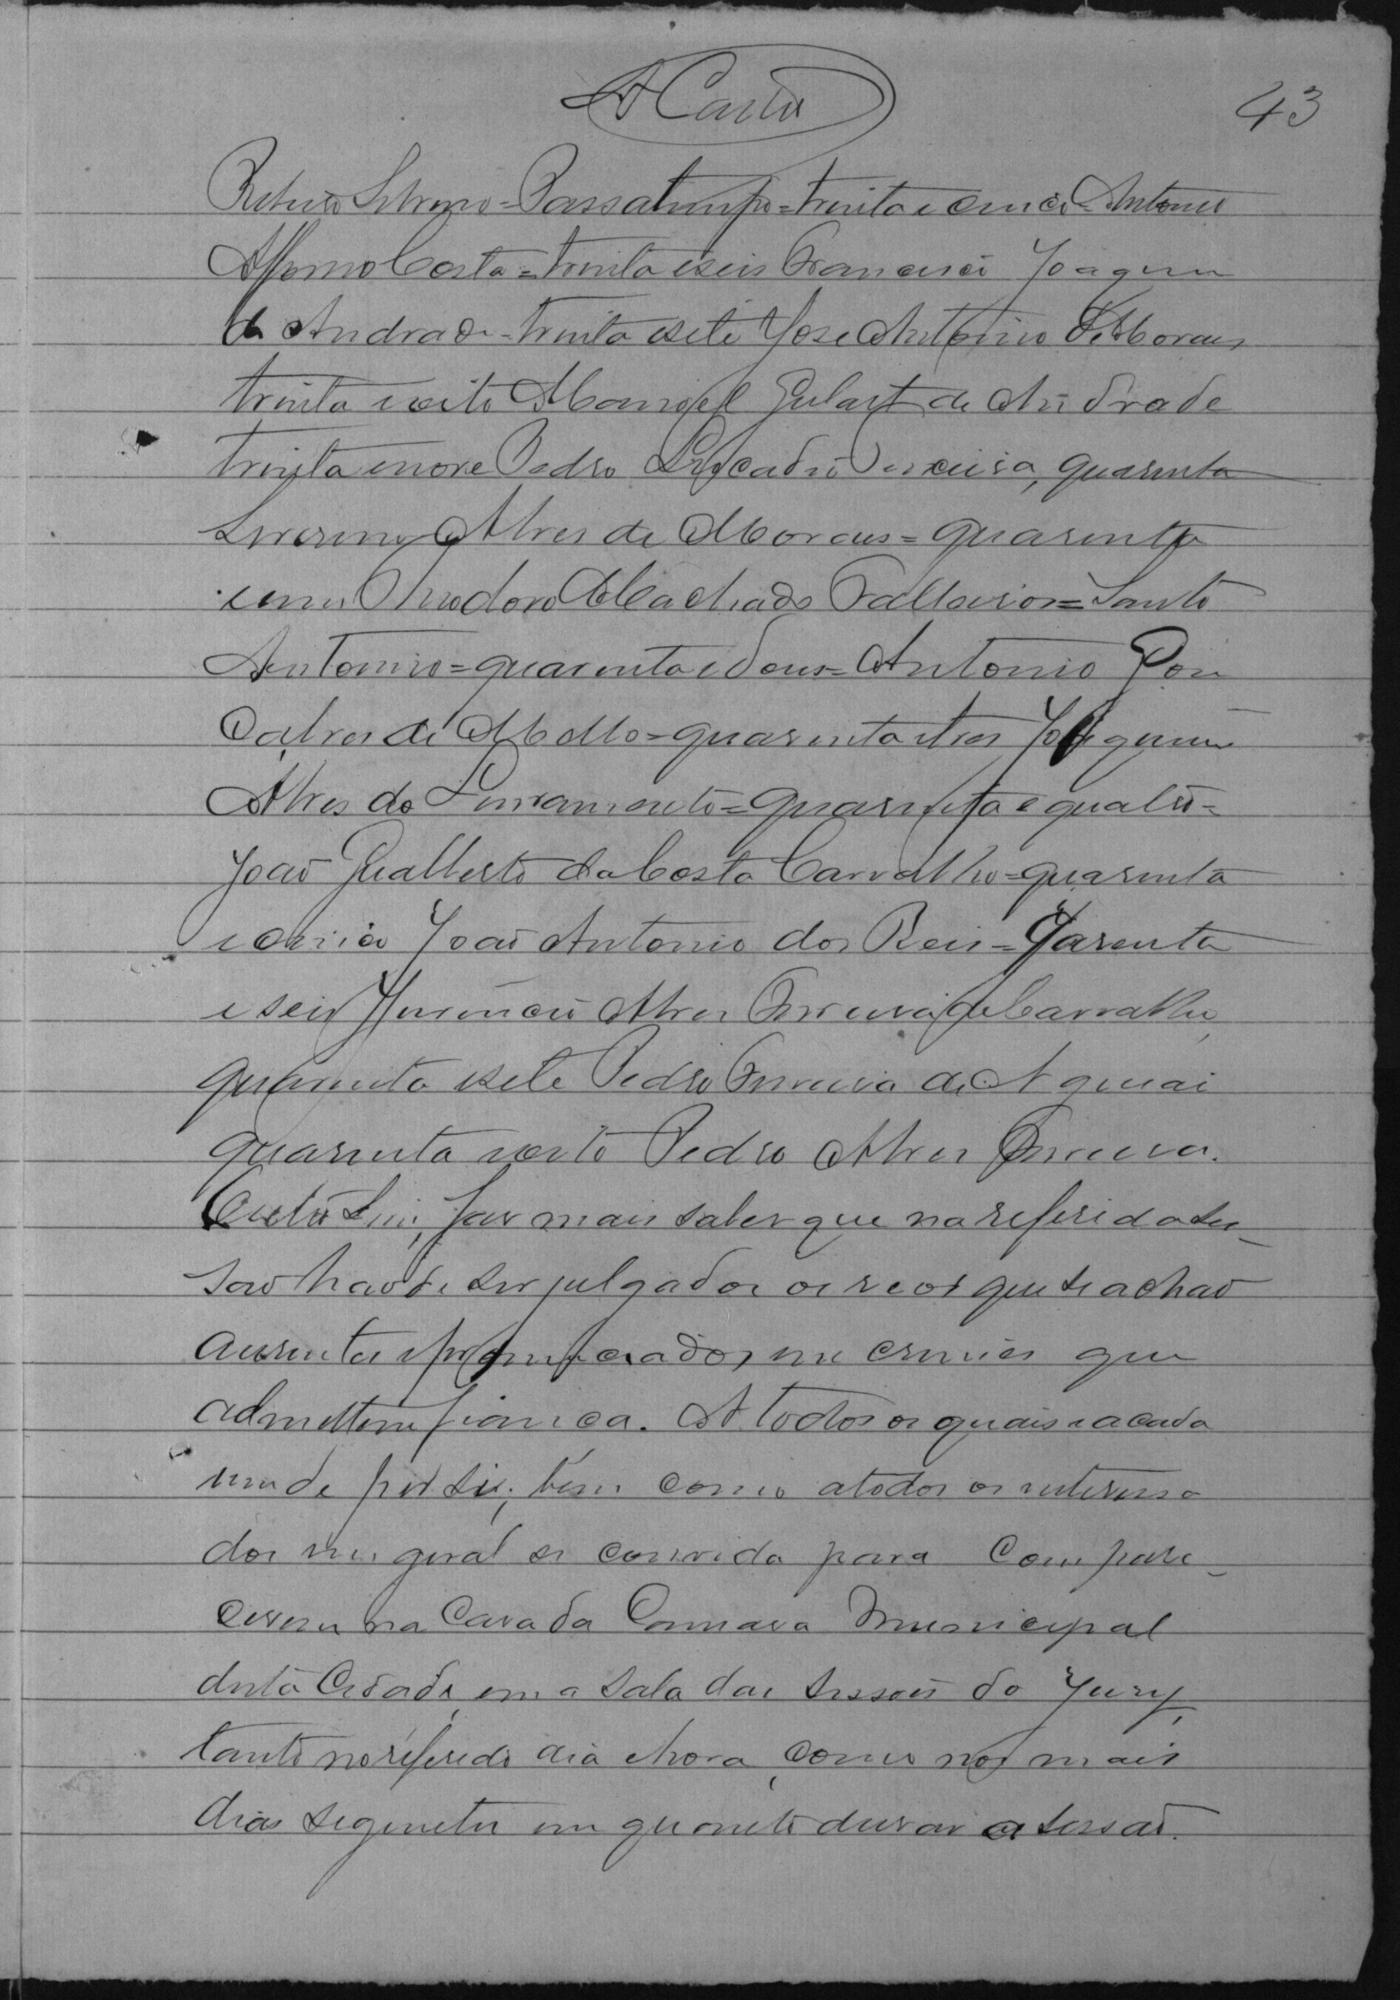 A Costa
43
Silverio = Passatempo = trinta e cinco = Antonio
Affonso Costa = trinta e seis Francisco Joaquim
de Andrade = trinta e sete José Antonio de Moraes
trinta e oito Manoel Gulart de Andrade
trinta e nove Pedro Leocadio Pereira, quarenta
Severino Alves de Moraes = quarenta
e um Theodoro Machado = Santo
Antonio = quarenta e dous = Antonio Gon
çalves de Mello = quarenta e tres Joaquim
Alves do Livramento = quarenta e quatro =
João Gualberto da Costa Carvalho = quarenta
e cinco João Antonio dos Reis = Quarenta
e seis Alves Ferreira de Carvalho,
quarenta e sete Pedro Ferreira de Aguiai
quarenta e oito Pedro Alves Ferreira.
Outro Sim, faz mais saber que na referida ses-
sao hao de ser julgados os reos que se achao
ausentes e pronunciados em crimes que
admittem fiança. A todos os quais e a cada
um de per si, bem como a todos os interessa
dos em geral se convida para compare-
cerem na Casa da Camara Municipal
desta Cidade, em a sala das sessoes do Jury,
tanto no referido dia e hora, como nos mais
dias seguintes em quanto durar a sessaõ.